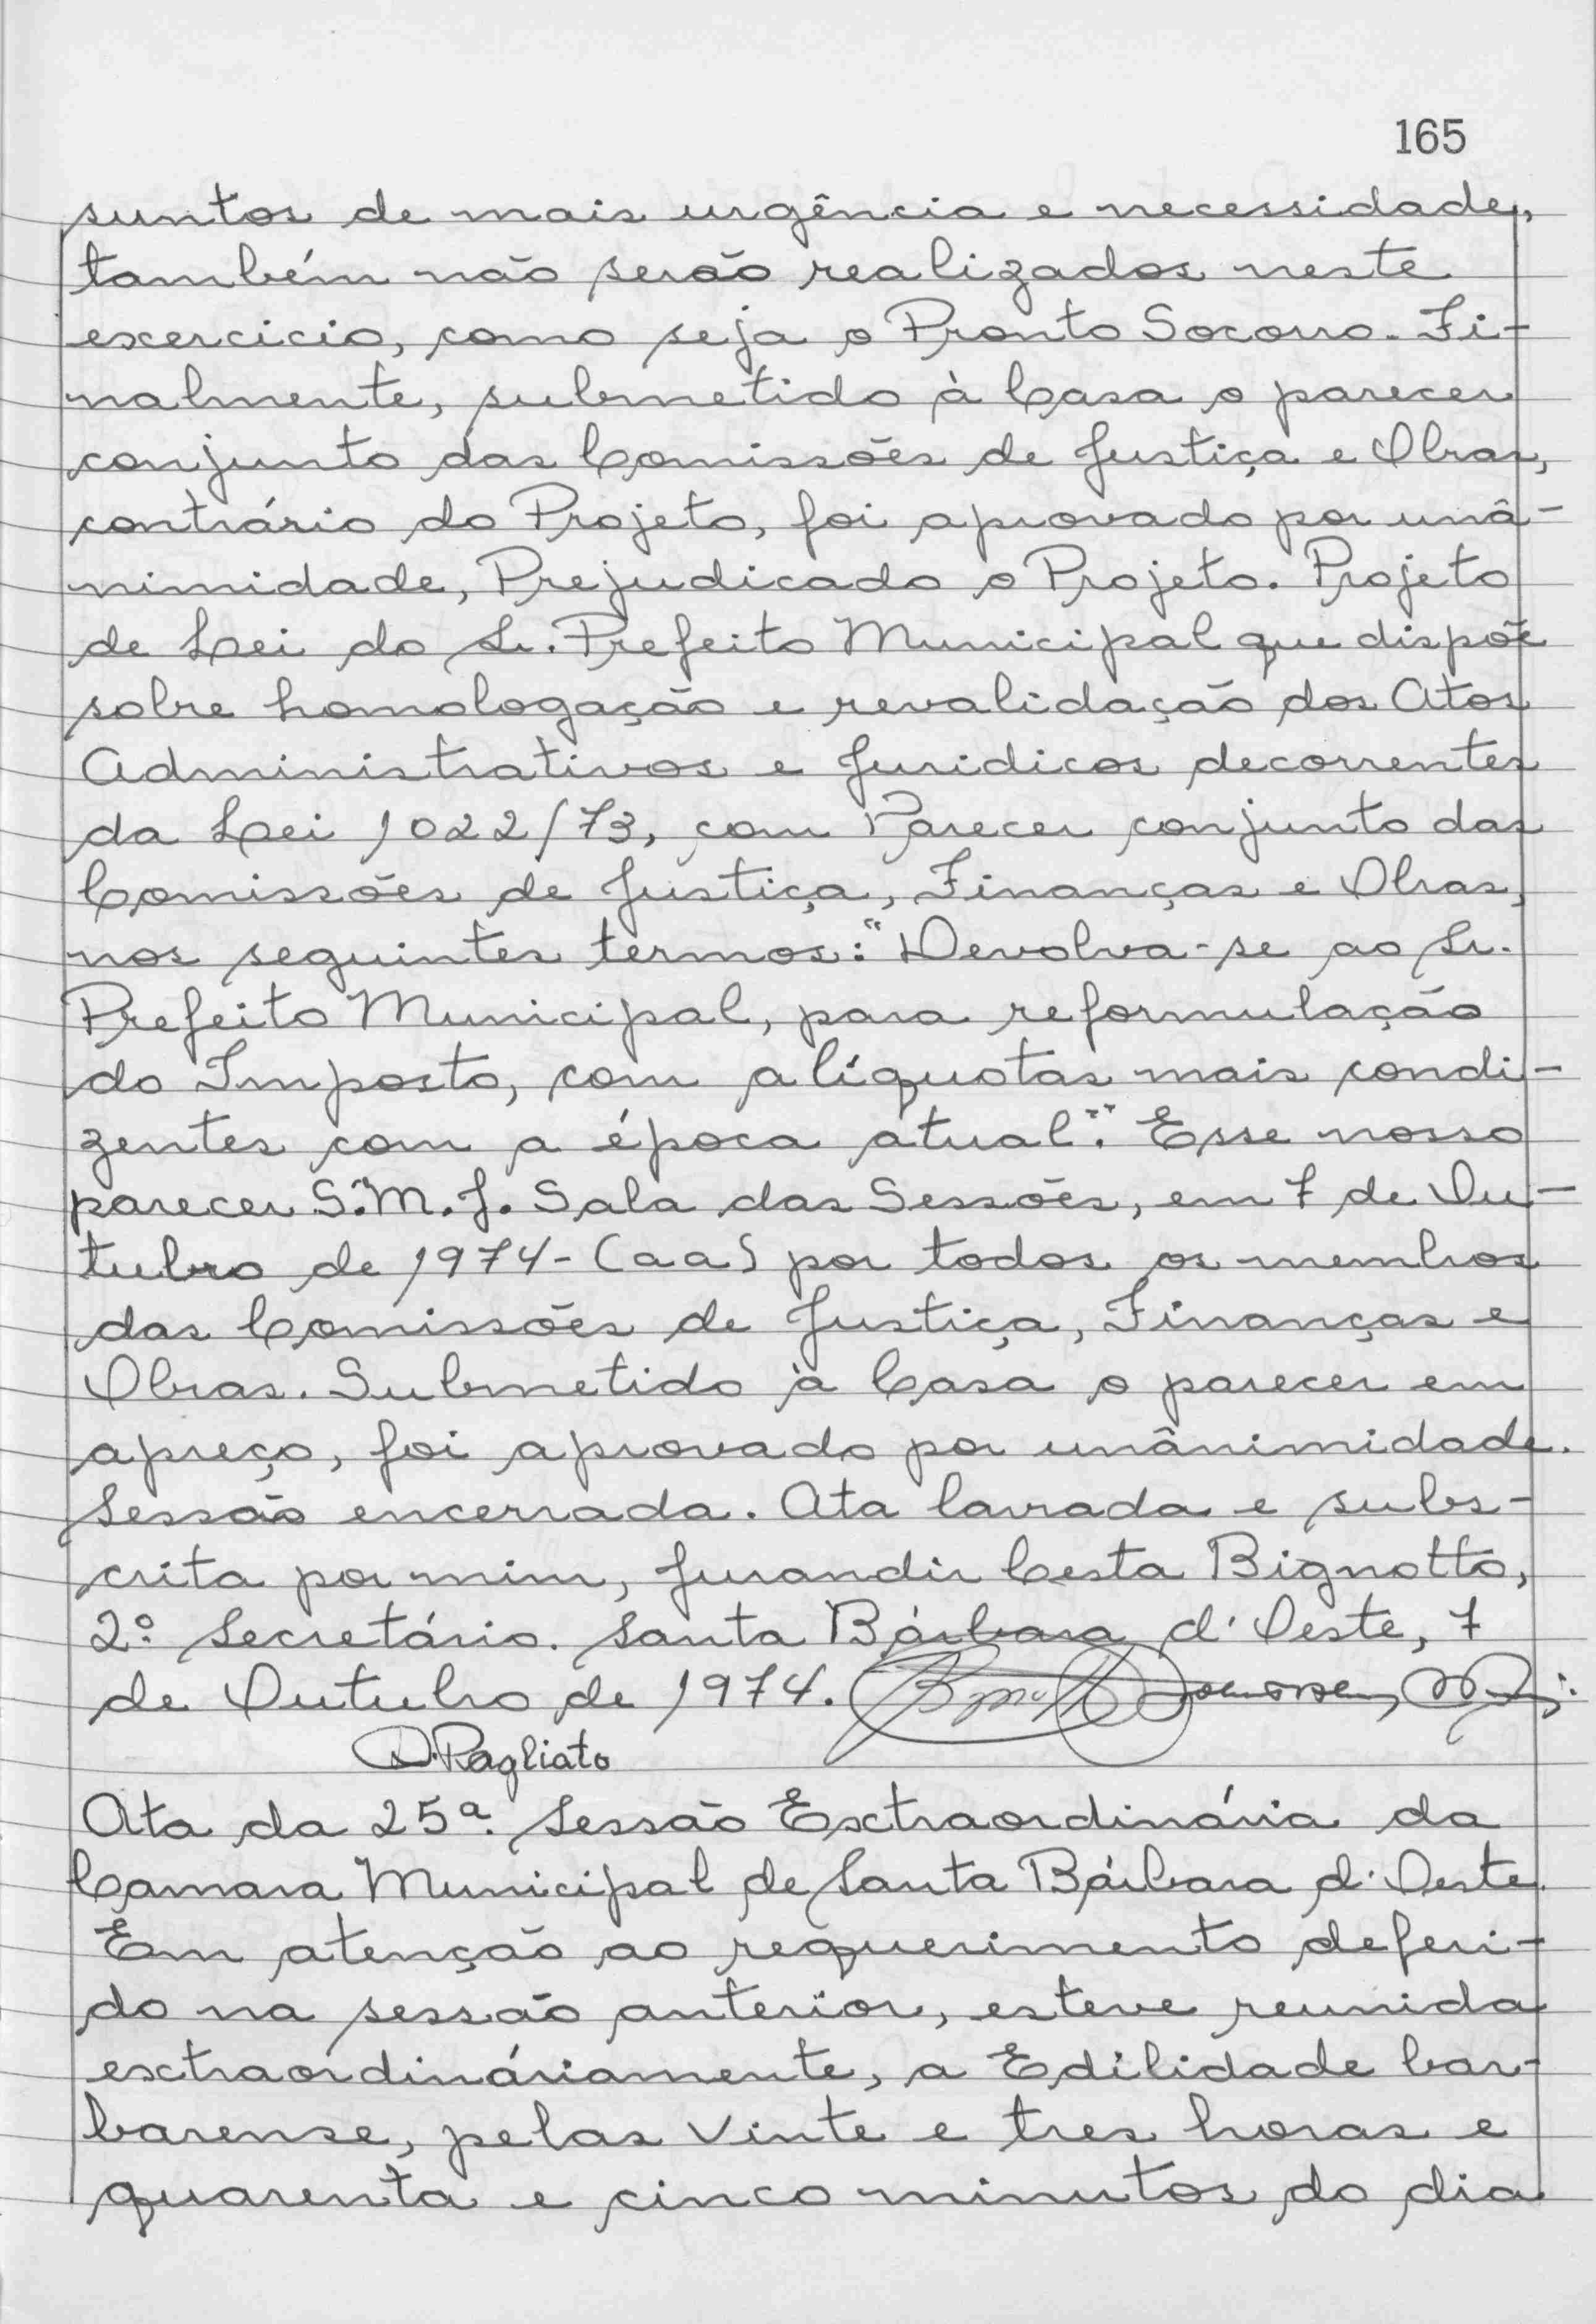 165
suntos de mais urgência e necessidade,
também não serão realizados neste
excercicio, como seja o Pronto Socorro. Fi-
nalmente, submetido à Casa o parecer
conjunto das Comissões de Justiça e Obras,
contrário do Projeto, foi aprovado por unâ-
nimidade, Prejudicado o Projeto. Projeto
de Lei do Sr. Prefeito Municipal que dispõe
sobre homologação e revalidação dos Atos
Administrativos e Juridicos decorrentes
da Lei 1022/73, com Parecer conjunto das
Comissões de Justiça, Finanças e Obras,
nos seguintes termos: "Devolva-se ao Sr.
Prefeito Municipal, para reformulação
do Imposto, com alíquotas mais condi-
zentes com a época atual". Esse nosso
parecer S.M.J. Sala das Sessões, em 7 de Ou-
tubro de 1974 - (aa) por todos os membros
das Comissões de Justiça, Finanças e
Obras. Submetido à Casa o parecer em
apreço, foi aprovado por unânimidade.
Sessão encerrada. Ata lavrada e subs-
crita por mim, Jurandir Cesta Bignotto,
2º Secretário. Santa Bárbara d'Oeste, 7
de Outubro de 1974.
D. Pagliato
Ata da 25ª Sessão Extraordinária da
Camara Municipal de Santa Bárbara d'Oeste.
Em atenção ao requerimento deferi-
do na sessão anterior, esteve reunida
extraordináriamente, a Edilidade bar-
barense, pelas vinte e tres horas e
quarenta e cinco minutos do dia